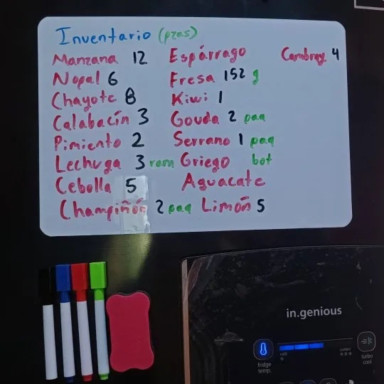 Inventario (pzas)
Manzana 12 Espárrago Cambray 4
Nopal 6 Fresa 152 g
Chayote 8 Kiwi 1
Calabacín 3 Gouda 2 paq
Pimiento 2 Serrano 1 paq
Lechuga 3 rom Griego bot
Cebolla 5 Aguacate
Champiñón 2 paq Limón 5
in.genious